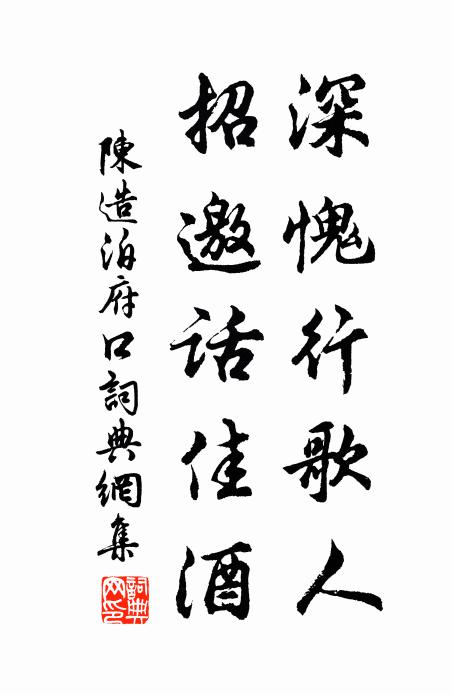 深愧行歌人
招邀話佳酒
陳造泊府口詞典網集
詞典网印